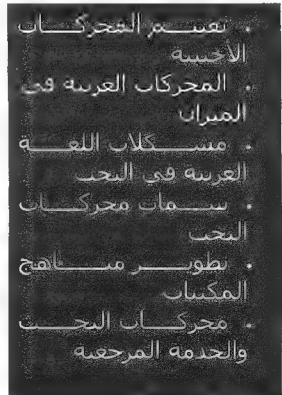 . تقييم المحركات
الأجنبية
. المحركات العربية في
الميزان
. مشكلات اللغة
العربية في البحث
. سمات محركات
البحث
. تطوير مناهج
المكتبات
. محركات البحث
والخدمة المرجعية